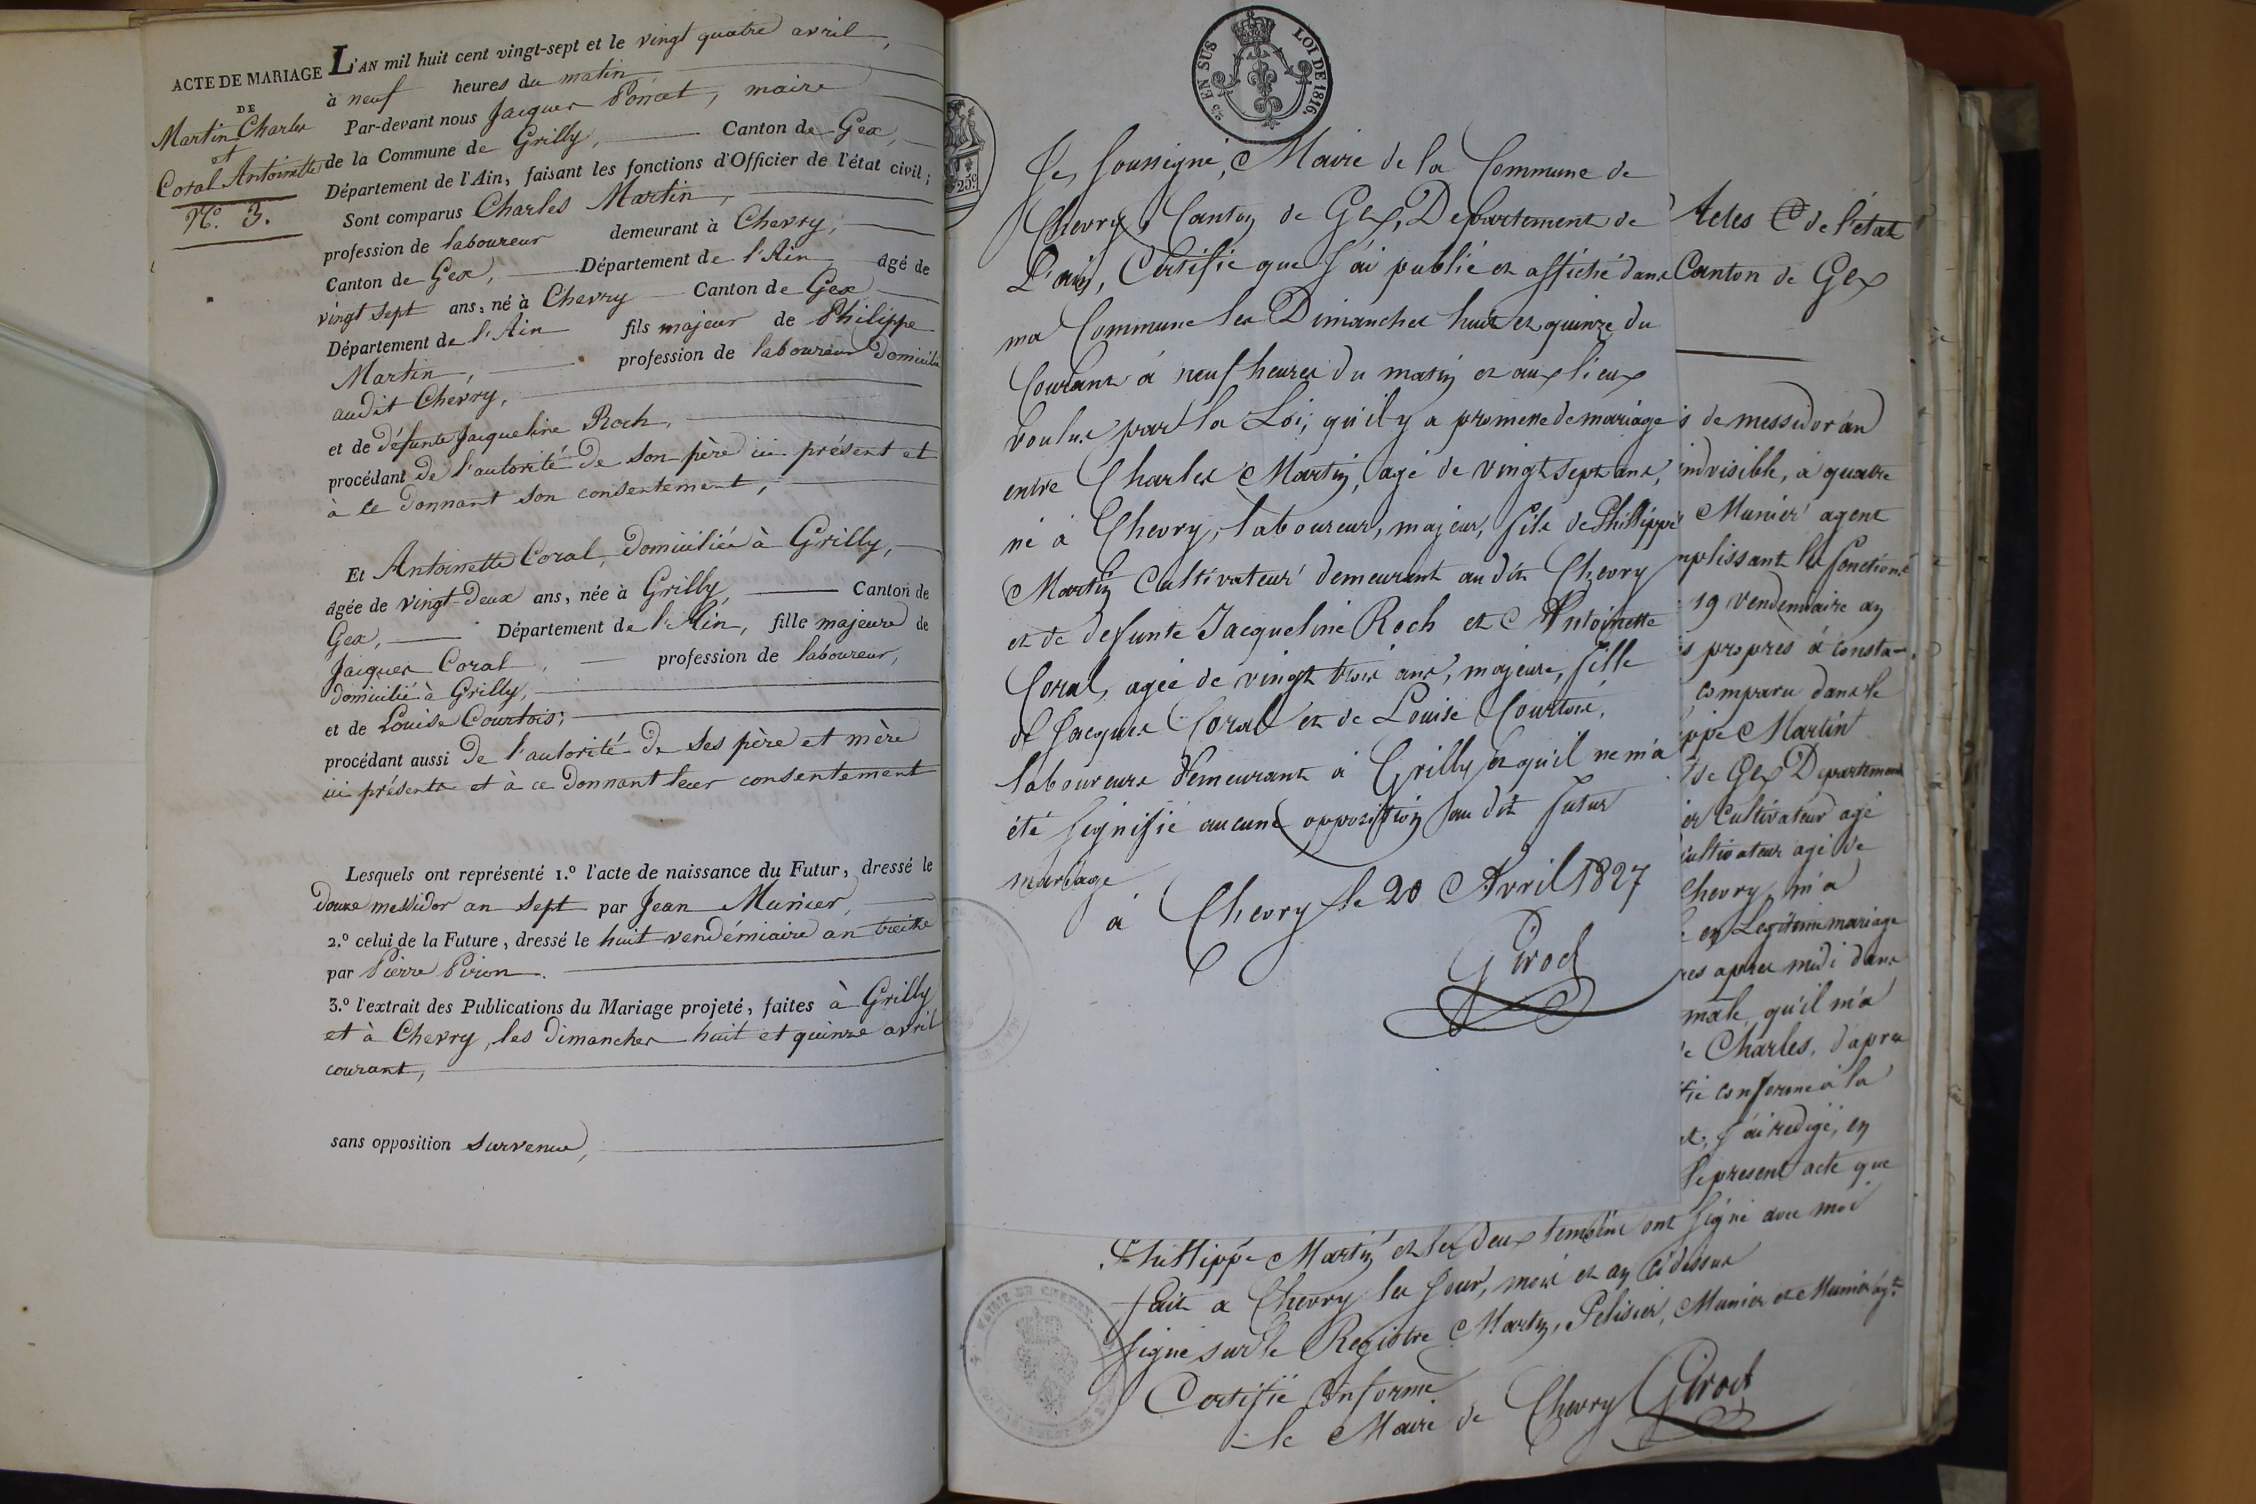 ACTE DE MARIAGE
DE
Martin Charles
et
Coral Antoinette
N.º 3.
L'AN mil huit cent vingt-sept et le vingt quatre avril,
à neuf heures du matin
Par-devant nous Jacques Poncet, maire
de la Commune de Grilly, Canton de Gex,
Département de l'Ain, faisant les fonctions d'Officier de l'état civil;
Sont comparus Charles Martin,
profession de laboureur demeurant à Chevry,
Canton de Gex, Département de l'Ain âgé de
vingt sept ans, né à Chevry Canton de Gex
Département de l'Ain fils majeur de Philippe
Martin, profession de laboureur domicilié
audit Chevry,
et de défunte Jacqueline Roch,
procédant de l'autorité de son père ici présent et
à ce donnant son consentement,
Et Antoinette Coral, domiciliée à Grilly,
âgée de vingt-deux ans, née à Grilly, Canton de
Gex, Département de l'Ain, fille majeure de
Jacques Coral, profession de laboureur,
domicilié à Grilly,
et de Louise Courtois;
procédant aussi de l'autorité de ses père et mère
ici présents et à ce donnant leur consentement
Lesquels ont représenté 1.º l'acte de naissance du Futur, dressé le
douze messidor an sept par Jean Munier,
2.º celui de la Future, dressé le huit vendémiaire an treize
par Pierre Piron.
3.º l'extrait des Publications du Mariage projeté, faites à Grilly
et à Chevry, les dimanches huit et quinze avril
courant,
sans opposition survenue,
25 c
25 EN SUS LOI DE 1816.
Je, soussigné, Maire de la Commune de
Chevry, Canton de Gex, Departement de
L'ain, Certifie que j'ai publié et affiché dans
ma Commune les Dimanches huit et quinze du
Courant à neuf heures du matin et aux lieux
voulus par la Loi, qu'il y a promesse de mariage
entre Charles Martin, agé de vingt sept ans,
né à Chevry, laboureur, majeur, fils de Phillippe
Martin Cultivateur demeurant au dit Chevry
et de defunte Jacqueline Roch et Antoinette
Coral, agée de vingt trois ans, majeure, fille
de Jacques Coral et de Louise Courtois,
laboureurs demeurant à Grilly, et qu'il ne m'a
été signifié aucune opposition au dit futur
mariage
à Chevry le 20 Avril 1827
Girod
Actes de l'état
Canton de Gex
s de messidor an
indvisible, à quatre
Munier agent
mplissant les fonctions
19 vendemiaire an
s propres à consta-
comparu dans le
ippe Martin
de Gex Departement
er Cultivateur agé
Cultivateur agé de
Chevry m'a
en Legitime mariage
res apres midi dans
male, qu'il m'a
de Charles, d'apres
fié conforme à la
et, j'ai redigé, en
le present acte que
Phillippe Martin et les deux temoins ont signé avec moi
fait a Chevry les jour, mois et an ci dessus
signé sur le Registre Martin, Pelisier, Munier et Munier agt
Certifié Conforme
le Maire de Chevry Girod
MAIRIE DE CHEVRY